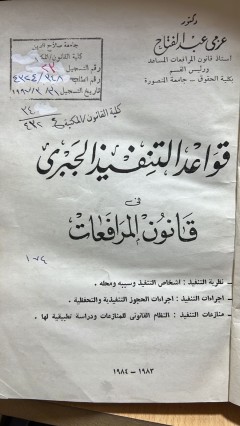 دكتور
عزمى عبد الفتاح
استاذ قانون المرافعات المساعد
ورئيس القسم
بكلية الحقوق – جامعة المنصورة
جامعة صلاح الدين
كلية القانون
رقم التسجيل
تاريخ التسجيل
كلية القانون
قواعد التنفيذ الجبرى
فى
قانون المرافعات
– نظرية التنفيذ : اشخاص التنفيذ وسببه ومحله .
– اجراءات التنفيذ : اجراءات الحجوز التنفيذية والتحفظية .
– منازعات التنفيذ : النظام القانونى للمنازعات ودراسة تطبيقية لها .
١٩٨٣ – ١٩٨٤